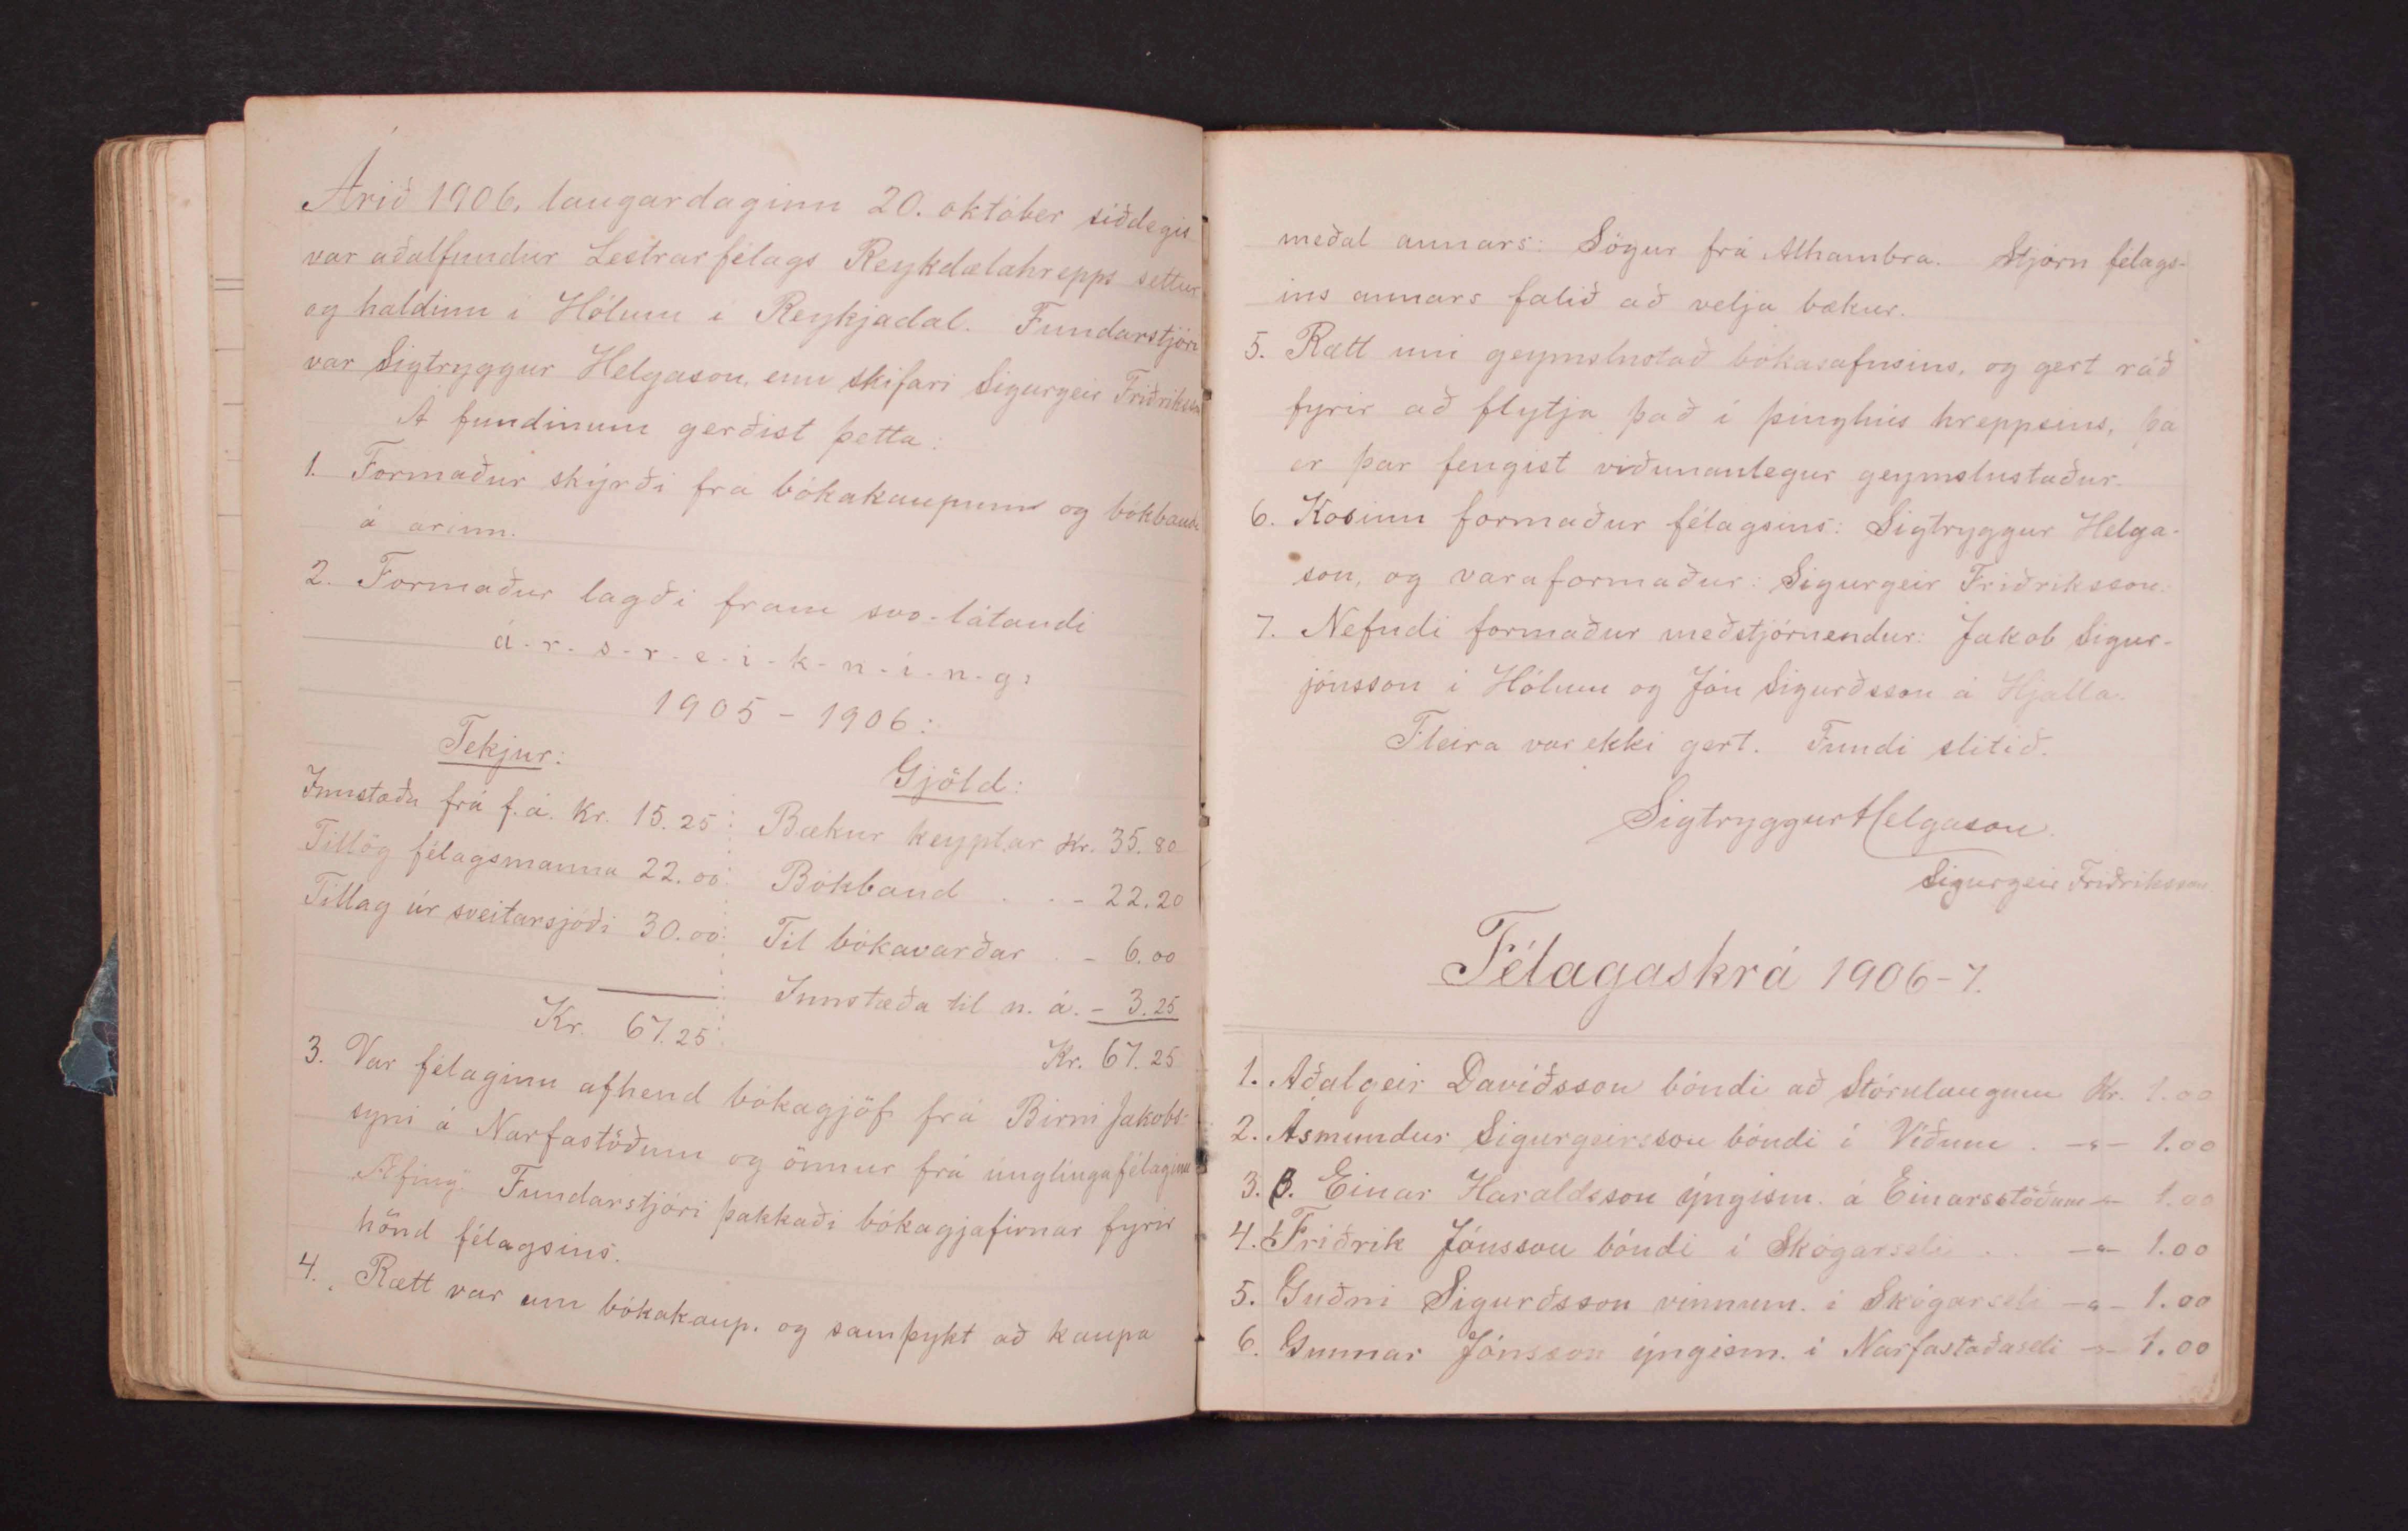 Árið 1906, laugardaginn 20. október síðdegis
var aðalfundur Lestrarfélags Reykdælahrepps settur
og haldinn í Hólum í Reykjadal. Fundarstjóri
var Sigtryggur Helgason, enn skifari Sigurgeir Friðriksson
Á fundinum gerðist þetta:
1. Formaður skýrði fra bókakaupum og bókbandi
á arinu.
2. Formaður lagði fram svo-látandi
á-r-s-r-e-i-k-n-í-n-g:
1905 - 1906:
Tekjur:
Innstæða frá f.á. Kr. 15.25
Tillög félagsmanna 22.00
Tillag úr sveitarsjóði 30.00
Kr. 67.25
Gjöld:
Bækur keyptar Kr. 35.80
Bókband . . - 22.20
Til bókavarðar . - 6.00
Innstæða til n. á. - 3.25
Kr. 67.25
3. Var félaginu afhend bókagjöf frá Birni Jakobs-
syni á Narfastöðum og önnur frá únglíngafélaginu
Æfing. Fundarstjóri þakkaði bókagjafirnar fyrir
hönd félagsins.
4. Rætt var um bókakaup. og samþykt að kaupa
meðal annars: Sögur frá Alhambra. Stjórn félags-
ins annars falið að velja bækur.
5. Rætt um geymslustað bókasafnsins, og gert ráð
fyrir að flytja það í þinghús hreppsins, þá
er þar fengist viðunanlegur geymslustaður.
6. Kosinn formaður félagsins: Sigtryggur Helga-
son, og varaformaður: Sigurgeir Friðriksson.
7. Nefndi formaður meðstjórnendur: Jakob Sigur-
jónsson í Hólum og Jón Sigurðsson á Hjalla.
Fleira var ekki gert. Fundi slitið.
Sigtryggur Helgason.
Sigurgeir Friðriksson
Félagaskrá 1906-7.
1. Aðalgeir Davíðsson bóndi að Stórulaugum Kr. 1.00
2. Ásmundur Sigurgeirsson bóndi í Víðum . -"- 1.00
3. Einar Haraldsson ýngism. á Einarsstöðum -"- 1.00
4. Friðrik Jónsson bóndi í Skógarseli . . -"- 1.00
5. Guðni Sigurðsson vinnum. í Skógarseli -"- 1.00
6. Gunnar Jónsson ýngism. í Narfastaðaseli -"- 1.00